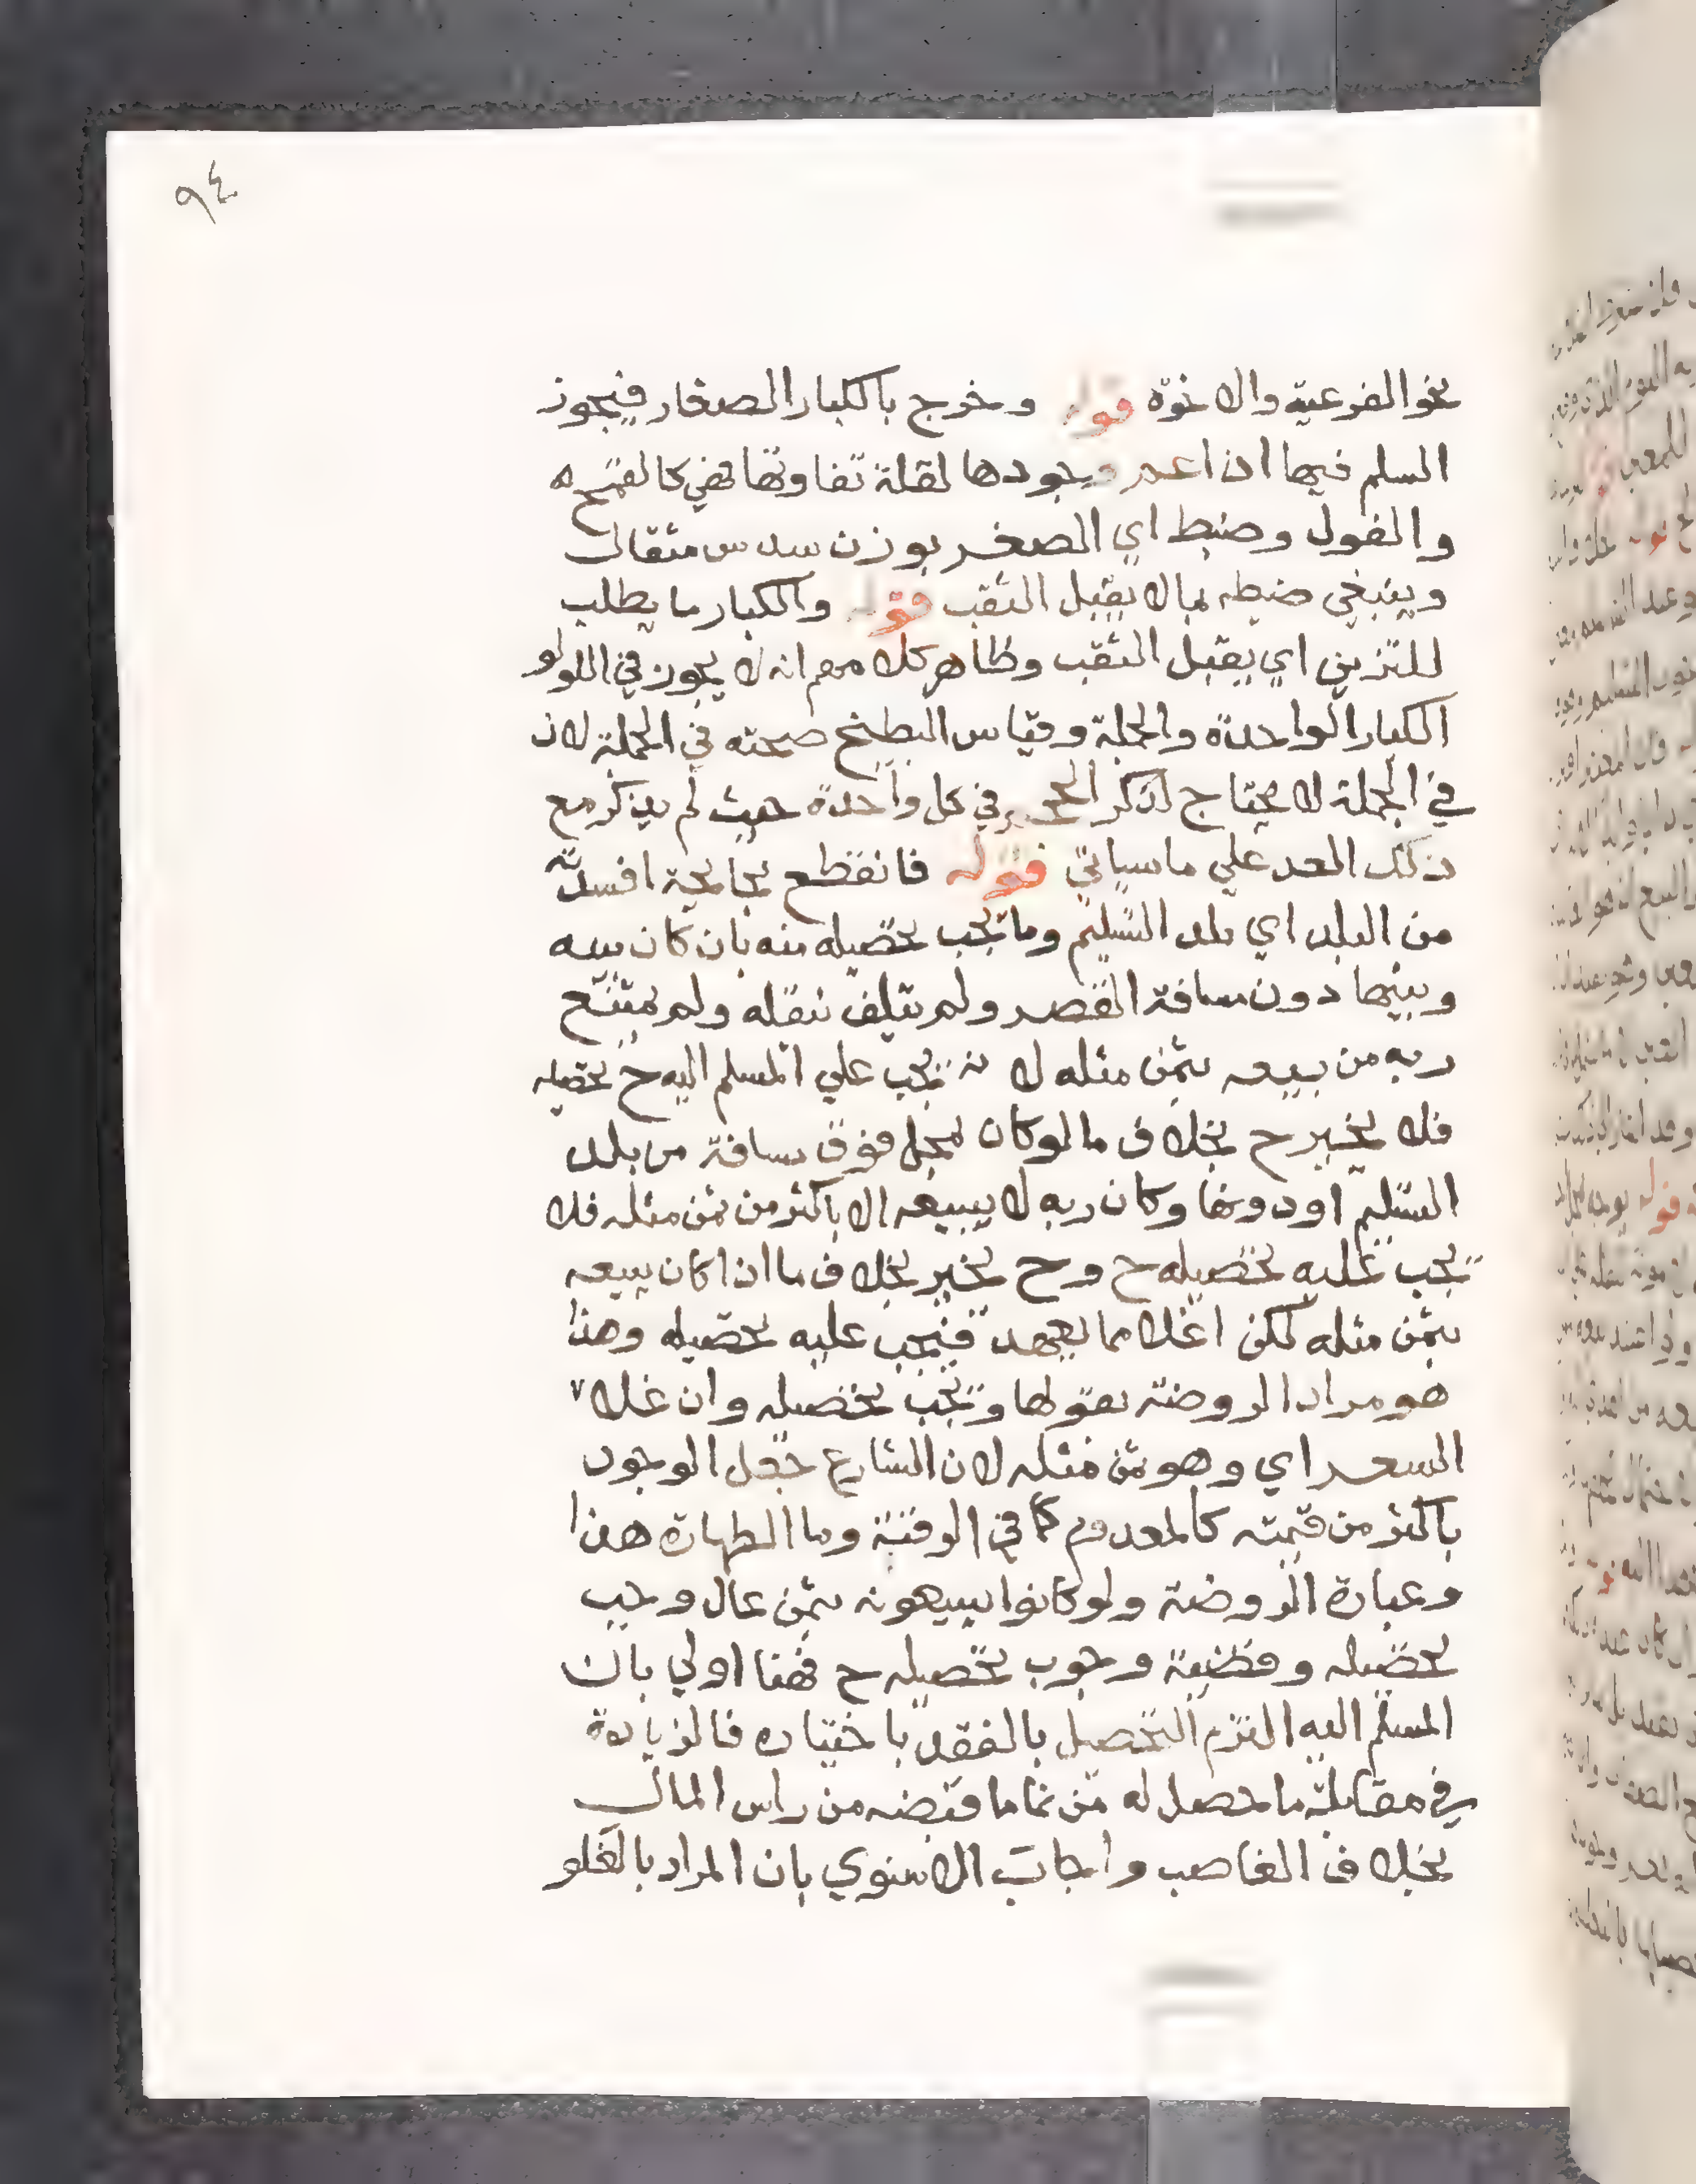 ٩٤
نحو الفرعية والاخوة قوله وخرج بالكبار الصغار فيجوز
السلم فيها ان اعم وجودها لقلة تفاوتها فهي كالقمح
والفول وضبط اي الصغير بوزن سدس مثقال
وينبغي ضبطه بمالا يقبل الثقب قوله والكبار ما يطلب
للتزين اي يقبل الثقب وظاهر كلامهم انه لا يجوز في اللولو
الكبار الواحدة والجملة وقياس البطيخ صحته في الجملة لان
في الجملة لا يحتاج لذكر الحجم في كل واحدة حيث لم يذكر مع
ذلك العد علي ماسياتي قوله فانقطع بجائحة افسدته
من البلد اي بلد التسليم وما يجب تحصيله منه بان كان بينه
وبينها دون مسافة القصر ولم يتلف بنقله ولم يمتنع
ربه من بيعه بثمن مثله لا نه يجب علي المسلم اليه ح تحصيله
فلا يخير ح بخلاف ما لو كان بمحل فوق مسافة من بلد
التسليم اودونها وكان ربه لا يبيعه الا باكثر من ثمن مثله فلا
يجب عليه تحصيله ح وح يخير بخلاف ما اذا كان يبيعه
بثمن مثله لكن اغلا مما يعهد فيجب عليه تحصيله وهذا
هو مراد الروضة بقولها ويجب تحصيله وان غلا
السعر اي وهو ثمن مثله لان الشارع جعل الوجود
باكثر من قيمته كالمعدوم كما في الرقبة وما الطهارة هذا
وعبارة الروضة ولو كانوا يبيعونه بثمن عال وجب
تحصيله وقضية وجوب تحصيله ح فهنا اولي بان
المسلم اليه التزم التحصيل بالفقد باختياره فالزيادة
في مقابلة ما حصل له من نما ما قبضه من راس المال
بخلاف الغاصب واجاب الاسنوي بان المراد بالغلو